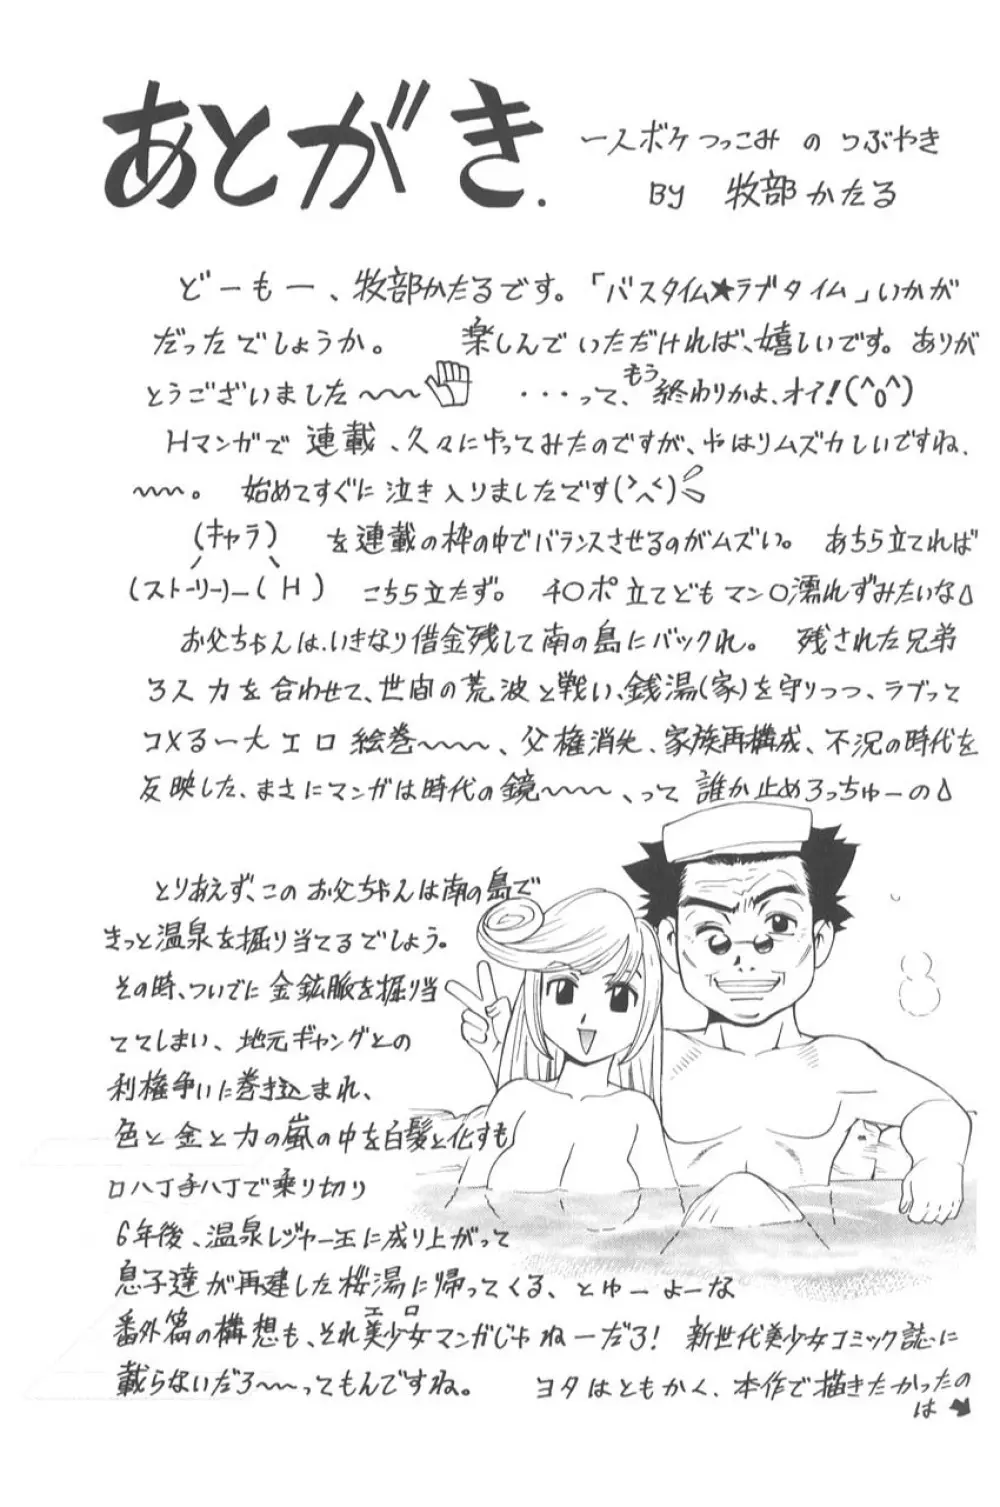 あとがき.
一人ボケつっこみ の つぶやき
BY 牧部かたる
どーもー、牧部かたるです。「バスタイム★ラブタイム」いかが
だったでしょうか。 楽しんでいただければ、嬉しいです。ありが
とうございました〜〜 ・・・って、もう終わりかよ、オイ!(^o^)
Hマンガで連載、久々にやってみたのですが、やはりムズカしいですね、
〜〜。 始めてすぐに泣き入りましたです(>へ<)
(キャラ) を連載の枠の中でバランスさせるのがムズい。 あちら立てれば
(ストーリー)ー(H) こちら立たず。 チ○ポ立てどもマン○濡れずみたいな
お父ちゃんは、いきなり借金残して南の島にバックれ。 残された兄弟
3人力を合わせて、世間の荒波と戦い、銭湯(家)を守りつつ、ラブって
コメる一大エロ絵巻〜〜〜、父権消失、家族再構成、不況の時代を
反映した、まさにマンガは時代の鏡〜〜〜、って 誰か止めろっちゅーの
とりあえず、このお父ちゃんは南の島で
きっと温泉を掘り当てるでしょう。
その時、ついでに金鉱脈を掘り当
ててしまい、地元ギャングとの
利権争いに巻き込まれ、
色と金と力の嵐の中を白髪と化すも
口八丁手八丁で乗り切り
6年後、温泉レジャー王に成り上がって
息子達が再建した桜湯に帰ってくる、とゆーよーな
番外篇の構想も、それ美少女エロマンガじゃねーだろ! 新世代美少女コミック誌に
載らないだろ〜〜ってもんですね。 ヨタはともかく、本作で描きたかったの
は